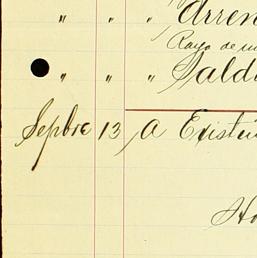 " " " Arren
Rayo de
" " " Sald
Sepbre 13 A Existe
Ho